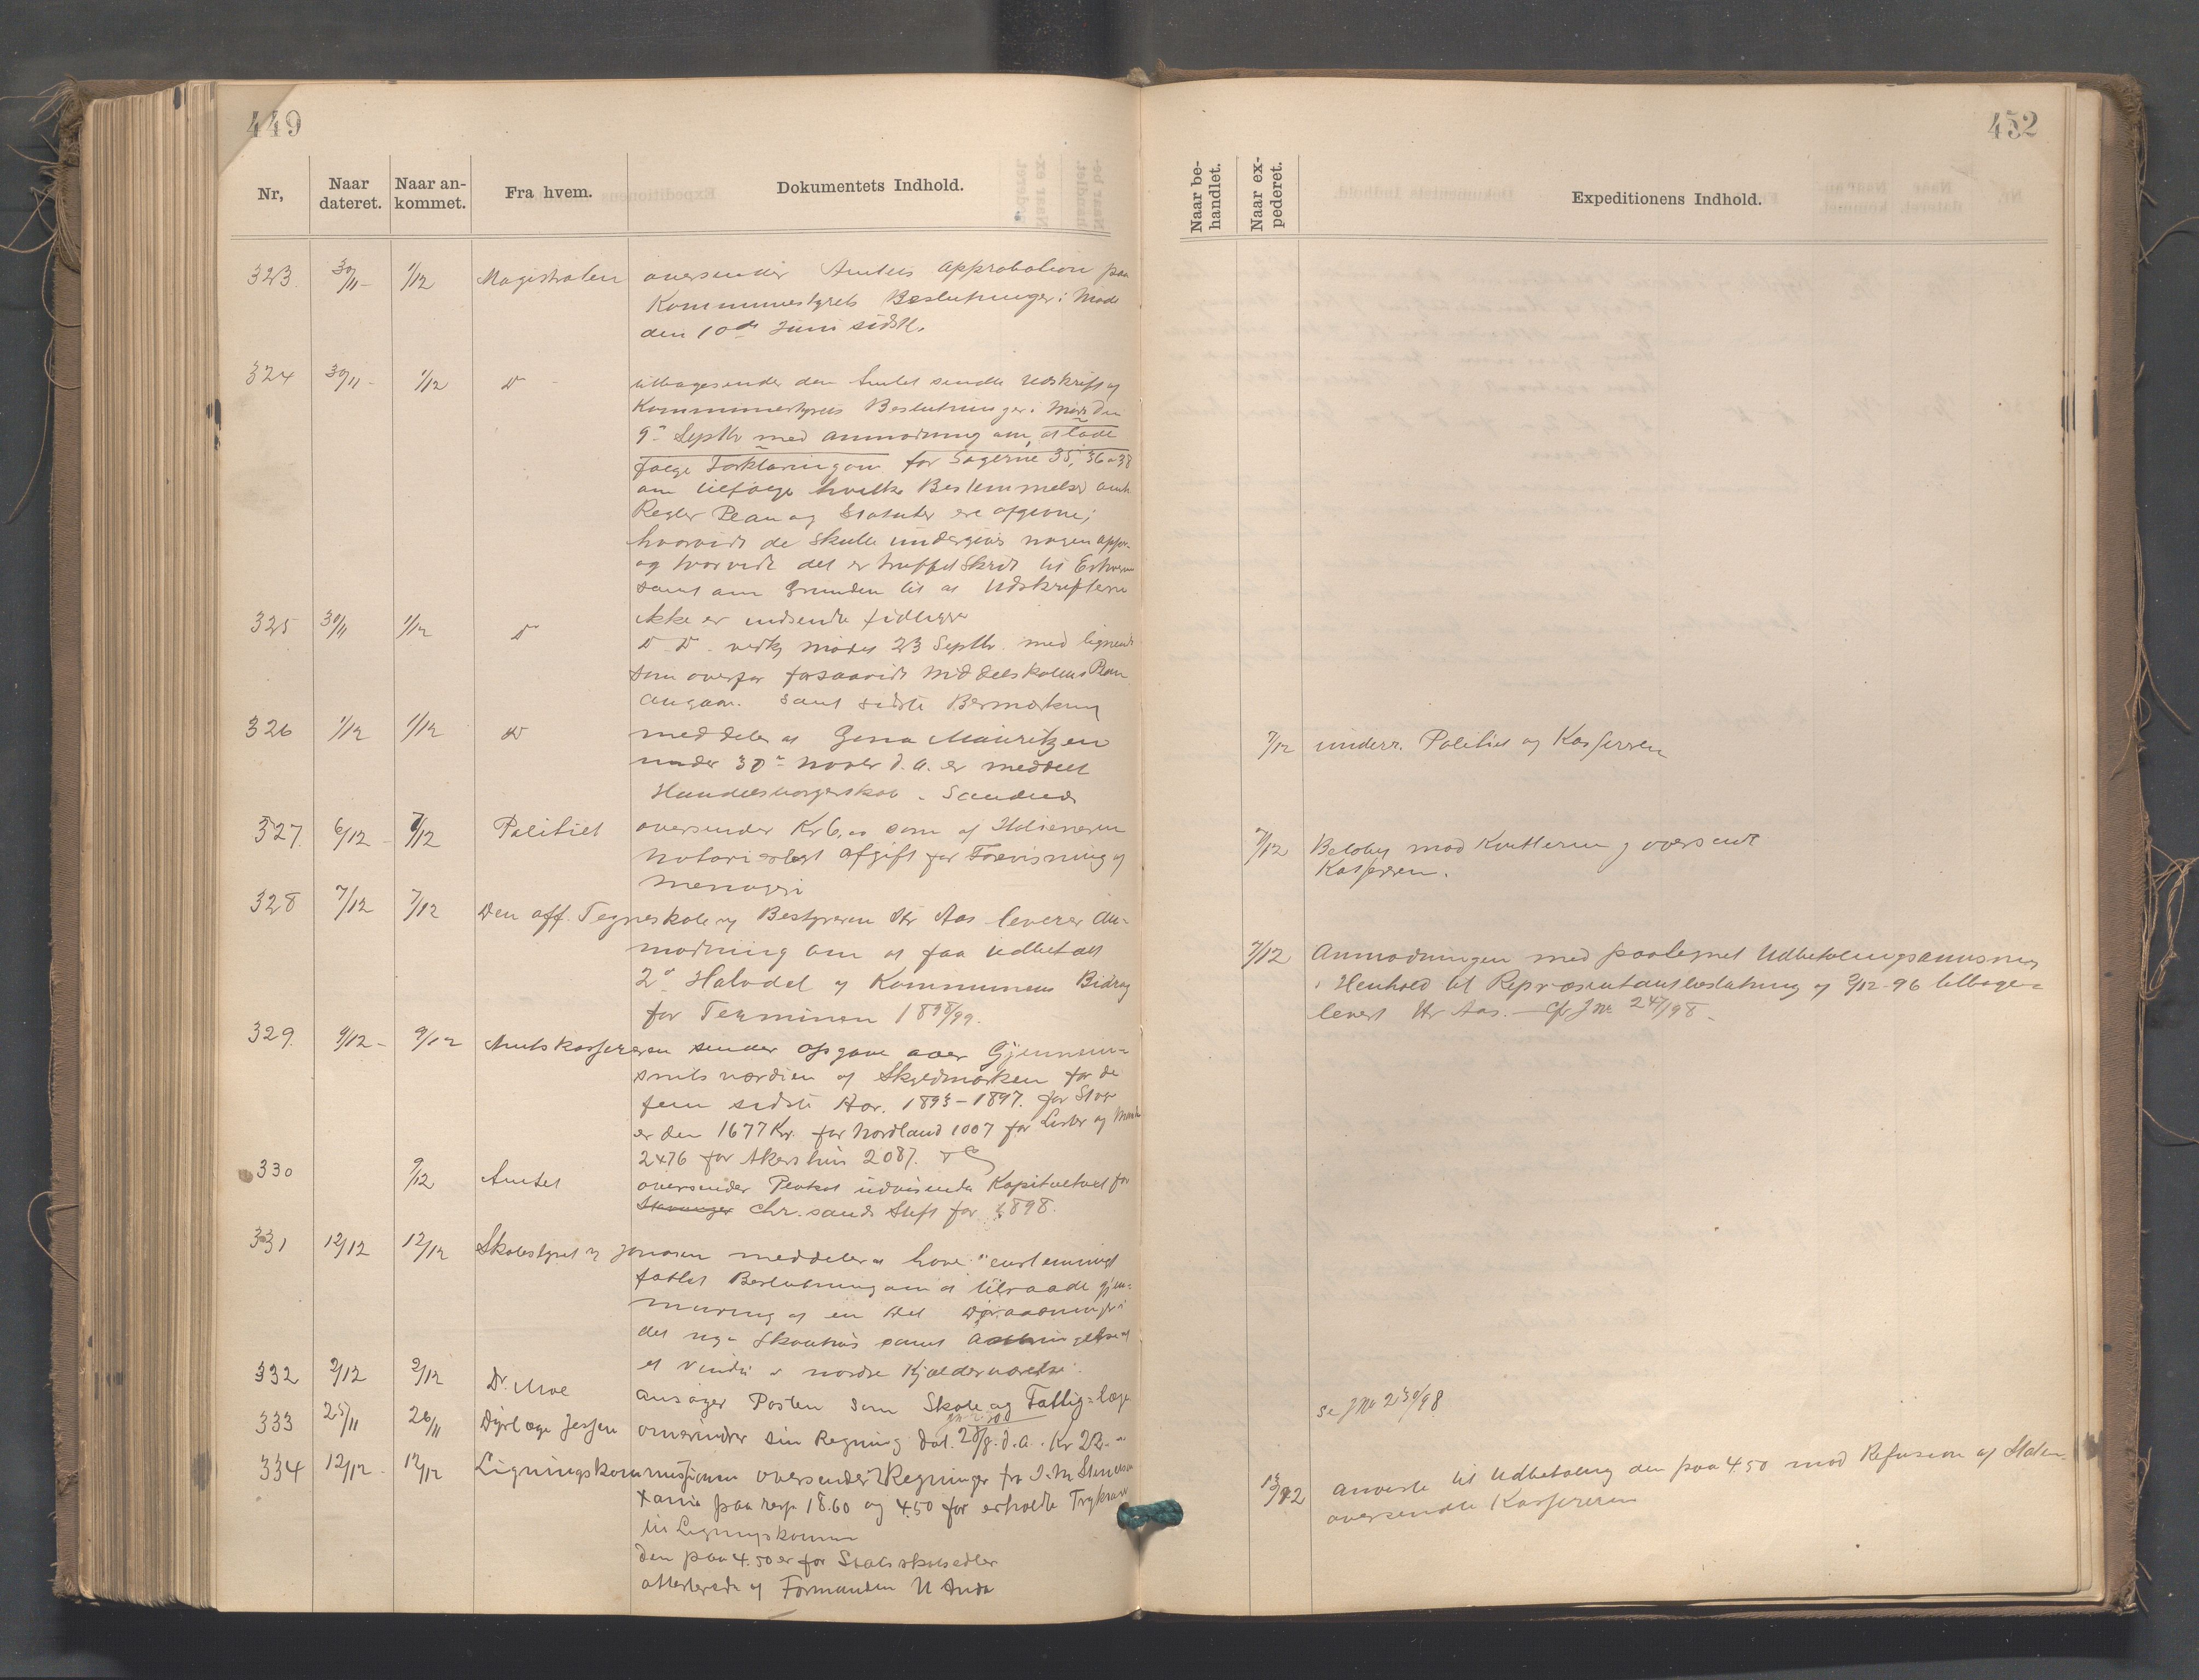 449
Nr, Naar dateret. Naar ankommet. Fra hvem. Dokumentets Indhold.
323. 30/11 - 1/12 Magistraten oversender Amtets Approbation paa
Kommunestyrets Beslutninger i Møde
den 10de Juni sidstl.
324 30/11 - 1/12 Do - tilbagesender den Amtet sendte Udskrift af
Kommunestyrets Beslutninger i Møde den
9de Septbr med Anmodning om at lade
følge Forklaring om for Sagerne 35, 36 & 38
om ifølge hvilke Bestemmelser
Regler Plan og Statuter ere afgivne;
hvorvidt de skulle undergives nogen appr.
og hvorvidt det er truffet Skridt til
samt om Grunden til at Udskrifterne
ikke er indsendte tidligere
325 30/11 1/12 Do Do Do vedk mødet 23 Septbr. med lignende
som ovenfor forsaavidt Middelskolens Plan
angaar. samt sidste Bemærkning
326 1/12 1/12 Do meddeler at Gina Mauritzen
under 30te Novbr d.A. er meddelt
Handelsborgerskab - Sandnes
327. 6/12 - 7/12 Politiet oversender Kr 6,00 som af Italieneren
Notari erlagt Afgift for Forevisning af
Menageri
328 7/12 7/12 Den off. Tegneskole v Bestyreren Hr Aas leverer An-
modning om at faa udbetalt
2de Halvdel af Kommunens Bidrag
for Terminen 1898/99.
329. 9/12 - 9/12 Amtskassereren sender Opgave over Gjennem-
snitsværdien af Skyldmarken for de
fem sidste Aar. 1893-1897. for Stav
er den 1677 Kr. for Nordland 1007 for Lister og Mandal
2476 for Akershus 2087.
330 9/12 Amtet oversender Plakat udvisende Kapitelstaxt for
Stavanger Chr.sands Stift for 1898.
331 12/12 12/12 Skolestyret v Jonasen meddeler at have "enstemmigt
fattet Beslutning om at tilraade gjen-
muring af en Del Døraabninger i
det nye Skolehus samt
et Vindu i nordre Kjælderværelse.
332 2/12 2/12 Dr. Moe ansøger Posten som Skole og Fattig-læge
333 25/11 26/11 Dyrlæge Jessen omsender sin Regning dat. 28/8. d.A. Kr 22.-
334 12/12 - 12/12 Ligningskommissionen oversender 2 Regninger fra I. M. Stenersen
Xania paa resp 18.60 og 4.50 for erholdte Tryksager
til Ligningskomm
den paa 4.50 er for Statsskatsedler
attesterede af Formanden
452
Naar behandlet. Naar expederet. Expeditionens Indhold.
7/12 underr. Politiet og Kassereren
7/12 Beløbet mod Kvittering oversendt
Kassereren.
7/12 Anmodningen med paategnet Udbetalingsanvisning
i Henhold til Repræsentantbeslutning af 2/12-96 tilbage-
levert Hr Aas. - Cfr J No 247/98 -
se J No 230/98
13/12 anviste til Udbetaling den paa 4.50 mod Refusion af Staten.
oversendte Kassereren